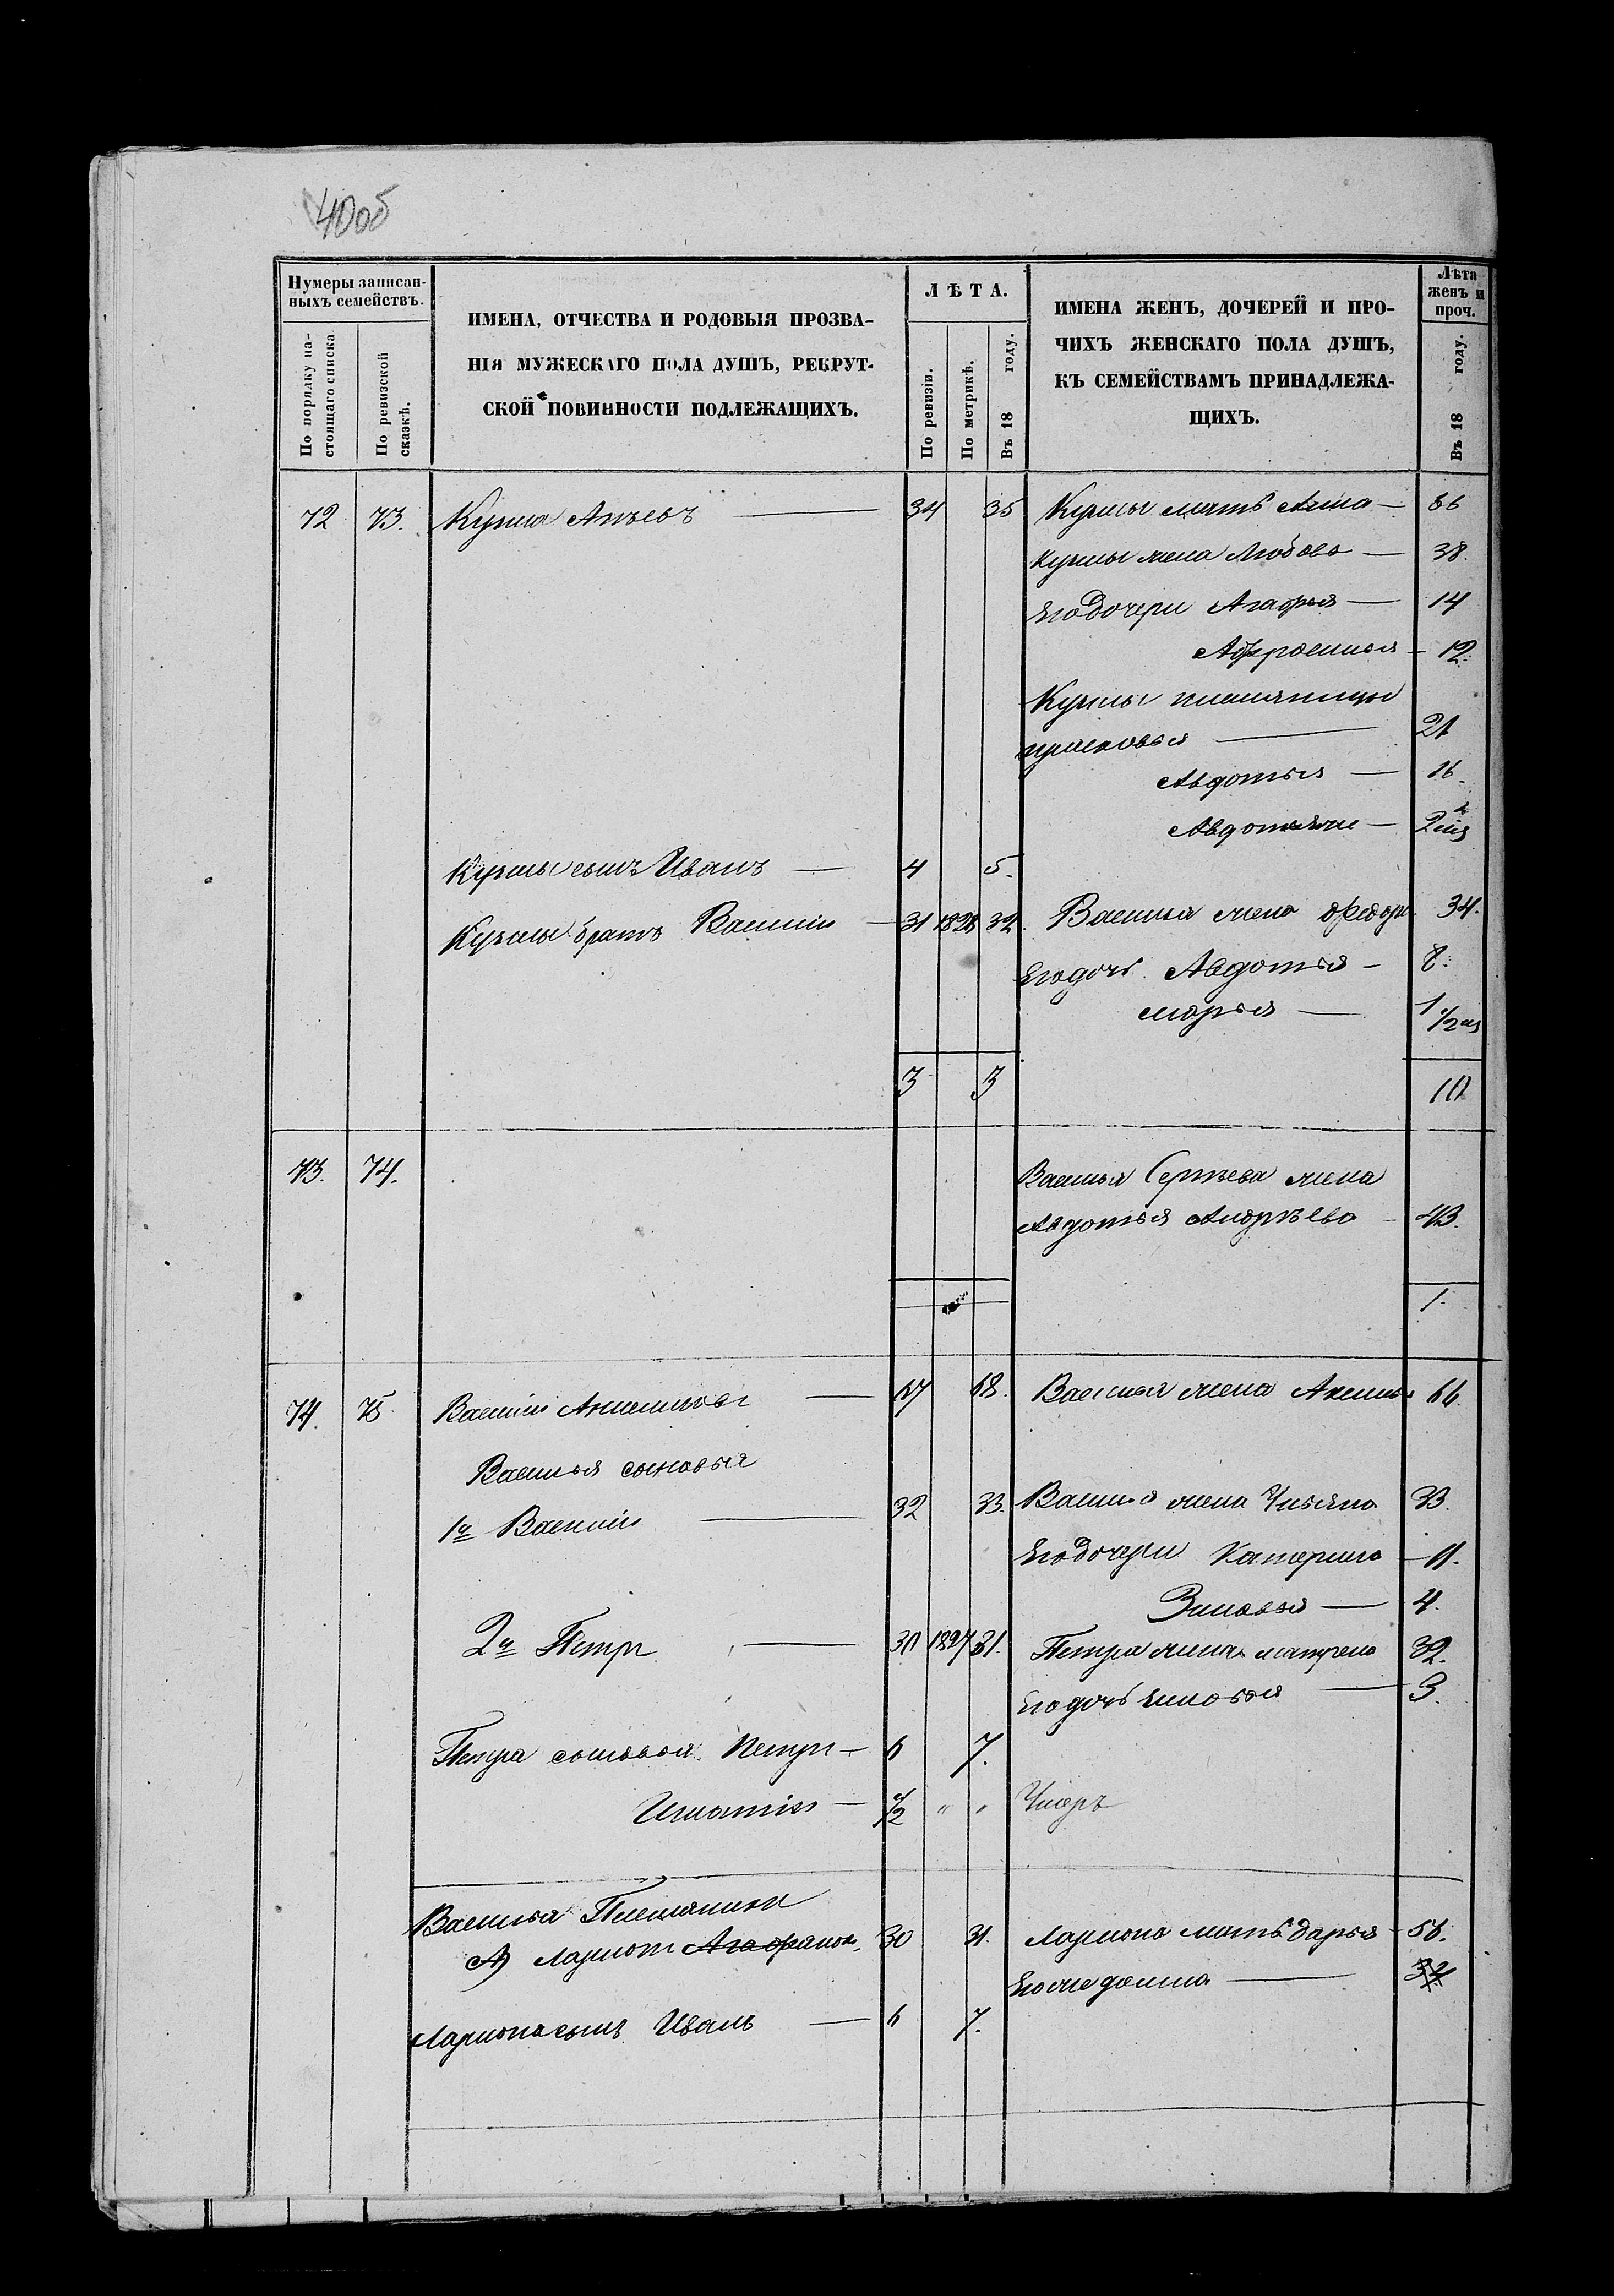 40об
Нумеры записан-
ныхъ семействъ.
По порядку на-
стоящаго списка
По ревизской
сказкѣ.
ИМЕНА, ОТЧЕСТВА И РОДОВЫЯ ПРОЗВА-
НІЯ МУЖЕСКАГО ПОЛА ДУШЪ, РЕКРУТ-
СКОЙ ПОВИННОСТИ ПОДЛЕЖАЩИХЪ.
ЛѢТА.
По ревизіи.
По метрикѣ.
Въ 18 году.
ИМЕНА ЖЕНЪ, ДОЧЕРЕЙ И ПРО-
ЧИХЪ ЖЕНСКАГО ПОЛА ДУШЪ,
КЪ СЕМЕЙСТВАМЪ ПРИНАДЛЕЖА-
ЩИХЪ.
Лѣта
женъ и
проч.
Въ 18 году.
72 73. Кузма 34 35 Кузмы мать Анна 66
Кузмы жена Любовь 38.
Его Дочери Агафья 14
12.
Кузмы племянницы
прасковья 21
Авдотья 16
Кузмы сынъ Иванъ 4 5.
Кузмы братъ Василій 31 1828 32. Василья жена Федор. 34.
Его дочь Авдотья 8.
марья 1 1/2
3 3 10
73. 74. Василья Сергѣева жена
Авдотья Андрѣева 43.
1.
74. 75 Василій 67 68. Василья жена Аксинья 66.
Василья сыновья
1й Василій 32 33. Василья жена Ульяна 33.
Его Дочери Катерина 11.
Зиновья 4.
2й Петръ 30 1827 31. Петра жена матрена 32.
Его дочь 3.
Петра сыновья Петръ 6 7.
Игнатій 1/2 " " Умеръ
Василья Племянники
А) Ларионъ 30 31. Лариона мать дарья 56.
Его жена домна 32
Лариона сынъ Иванъ 6 7.